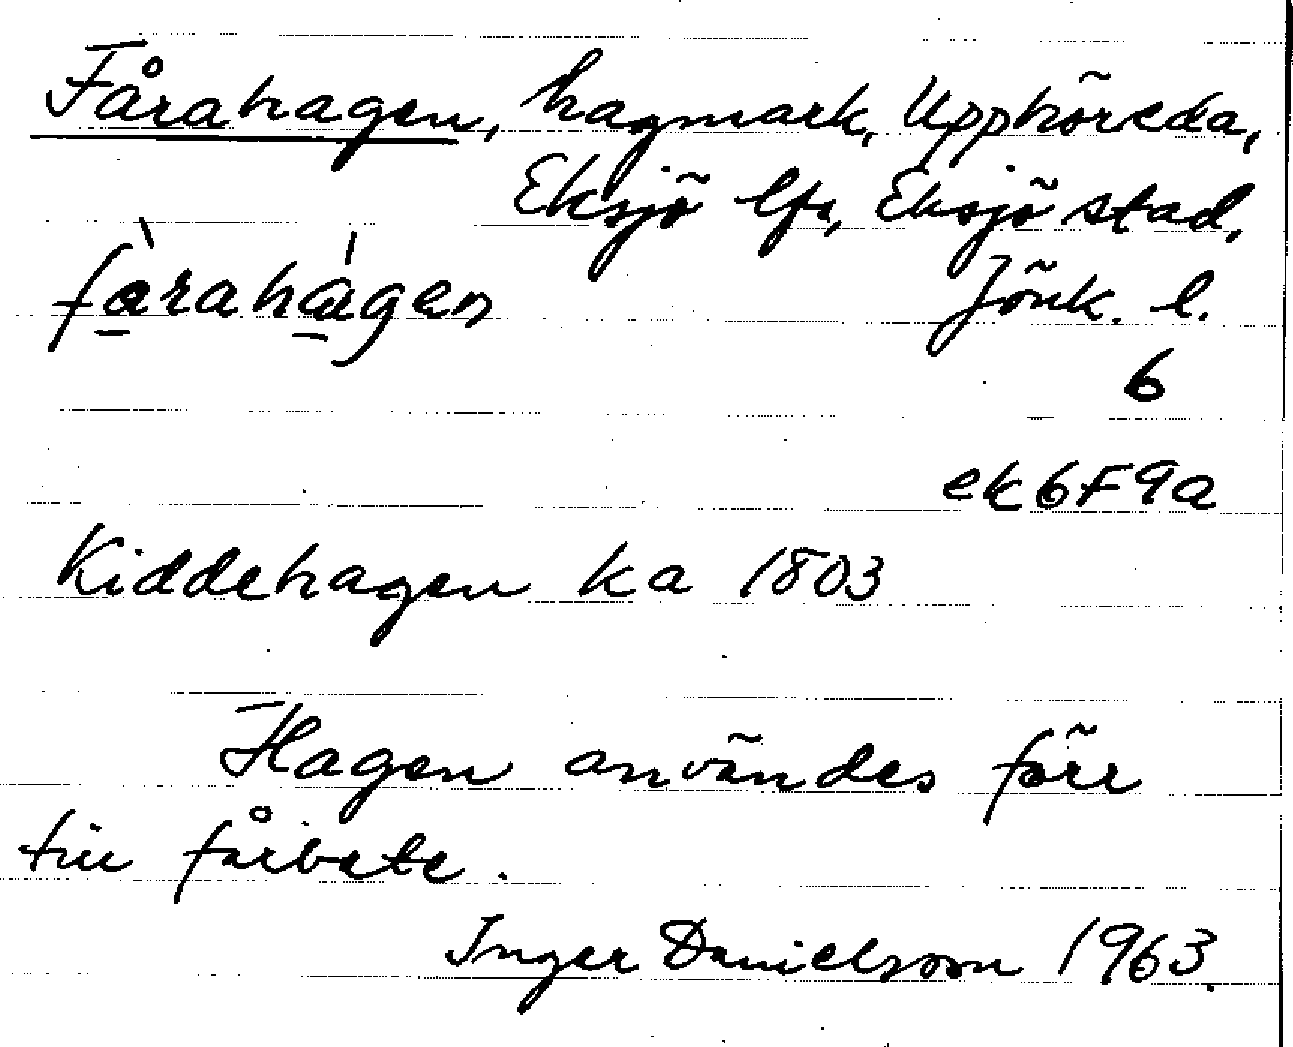 Fårahagen, hagmark, Upphöreda,
Eksjö lfs, Eksjö stad,
fàraha̍gen Jönk. l.
6
ek 6F9a
Kiddehagen ka 1803
Hagen användes förr
till fårbete.
Inger Danielsson 1963.